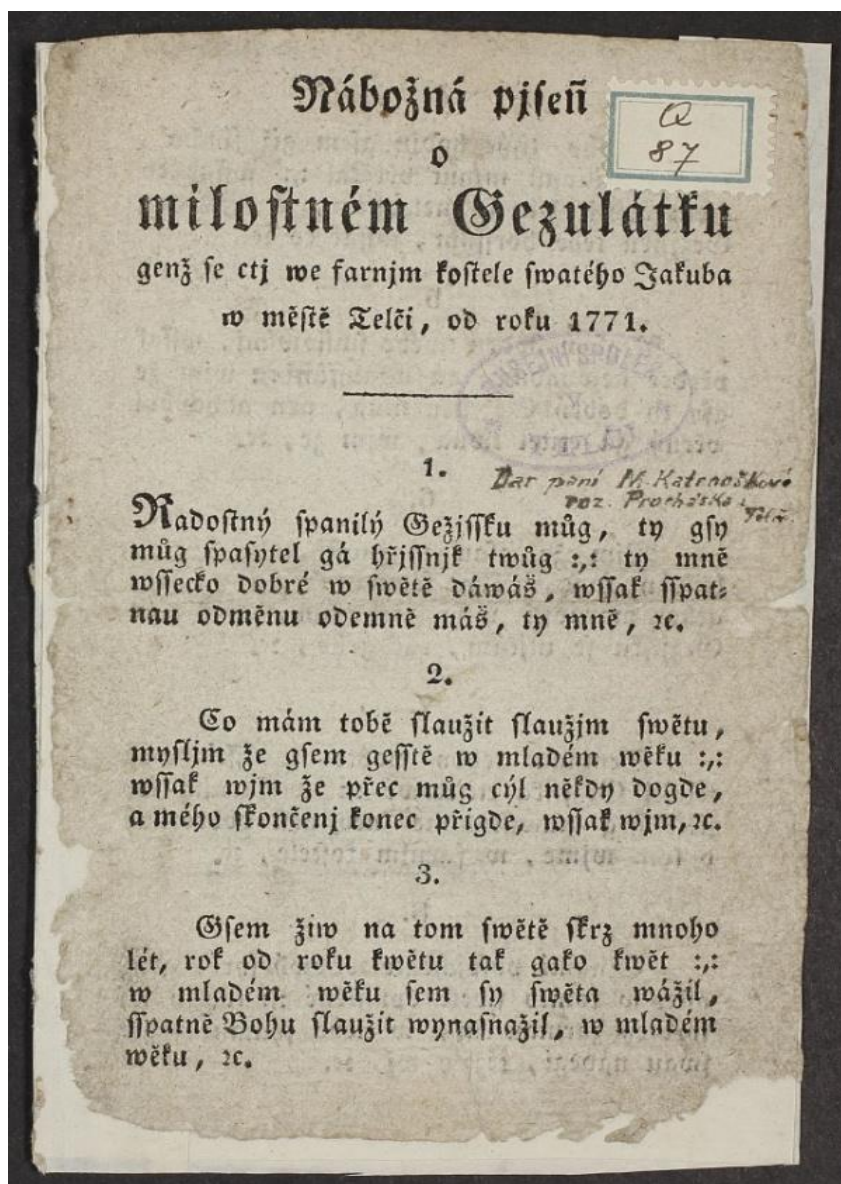 Nábožná pjseň
o
milostném Gezulátku
genž se ctj we farnjm kostele swatého Jakuba
w městě Telči, od roku 1771.
Q
87
1.
Dar paní M. Katrnoškové
roz. Procházka
Telč.
Radostný spanilý Gežjssku můg, ty gsy
můg spasytel gá hřjssnjk twůg :,: ty mně
wssecko dobré w swětě dáwáš, wssak sspat-
nau odměnu odemně máš, ty mně, ꝛc.
2.
Co mám tobě slaužit slaužjm swětu,
mysljm že gsem gesstě w mladém wěku :,:
wssak wjm že přec můg cýl někdy dogde,
a mého skončenj konec přigde, wssak wjm, ꝛc.
3.
Gsem žiw na tom swětě skrz mnoho
lét, rok od roku kwětu tak gako kwět :,:
w mladém wěku sem sy swěta wážil,
sspatně Bohu slaužit wynasnažil, w mladém
wěku, ꝛc.